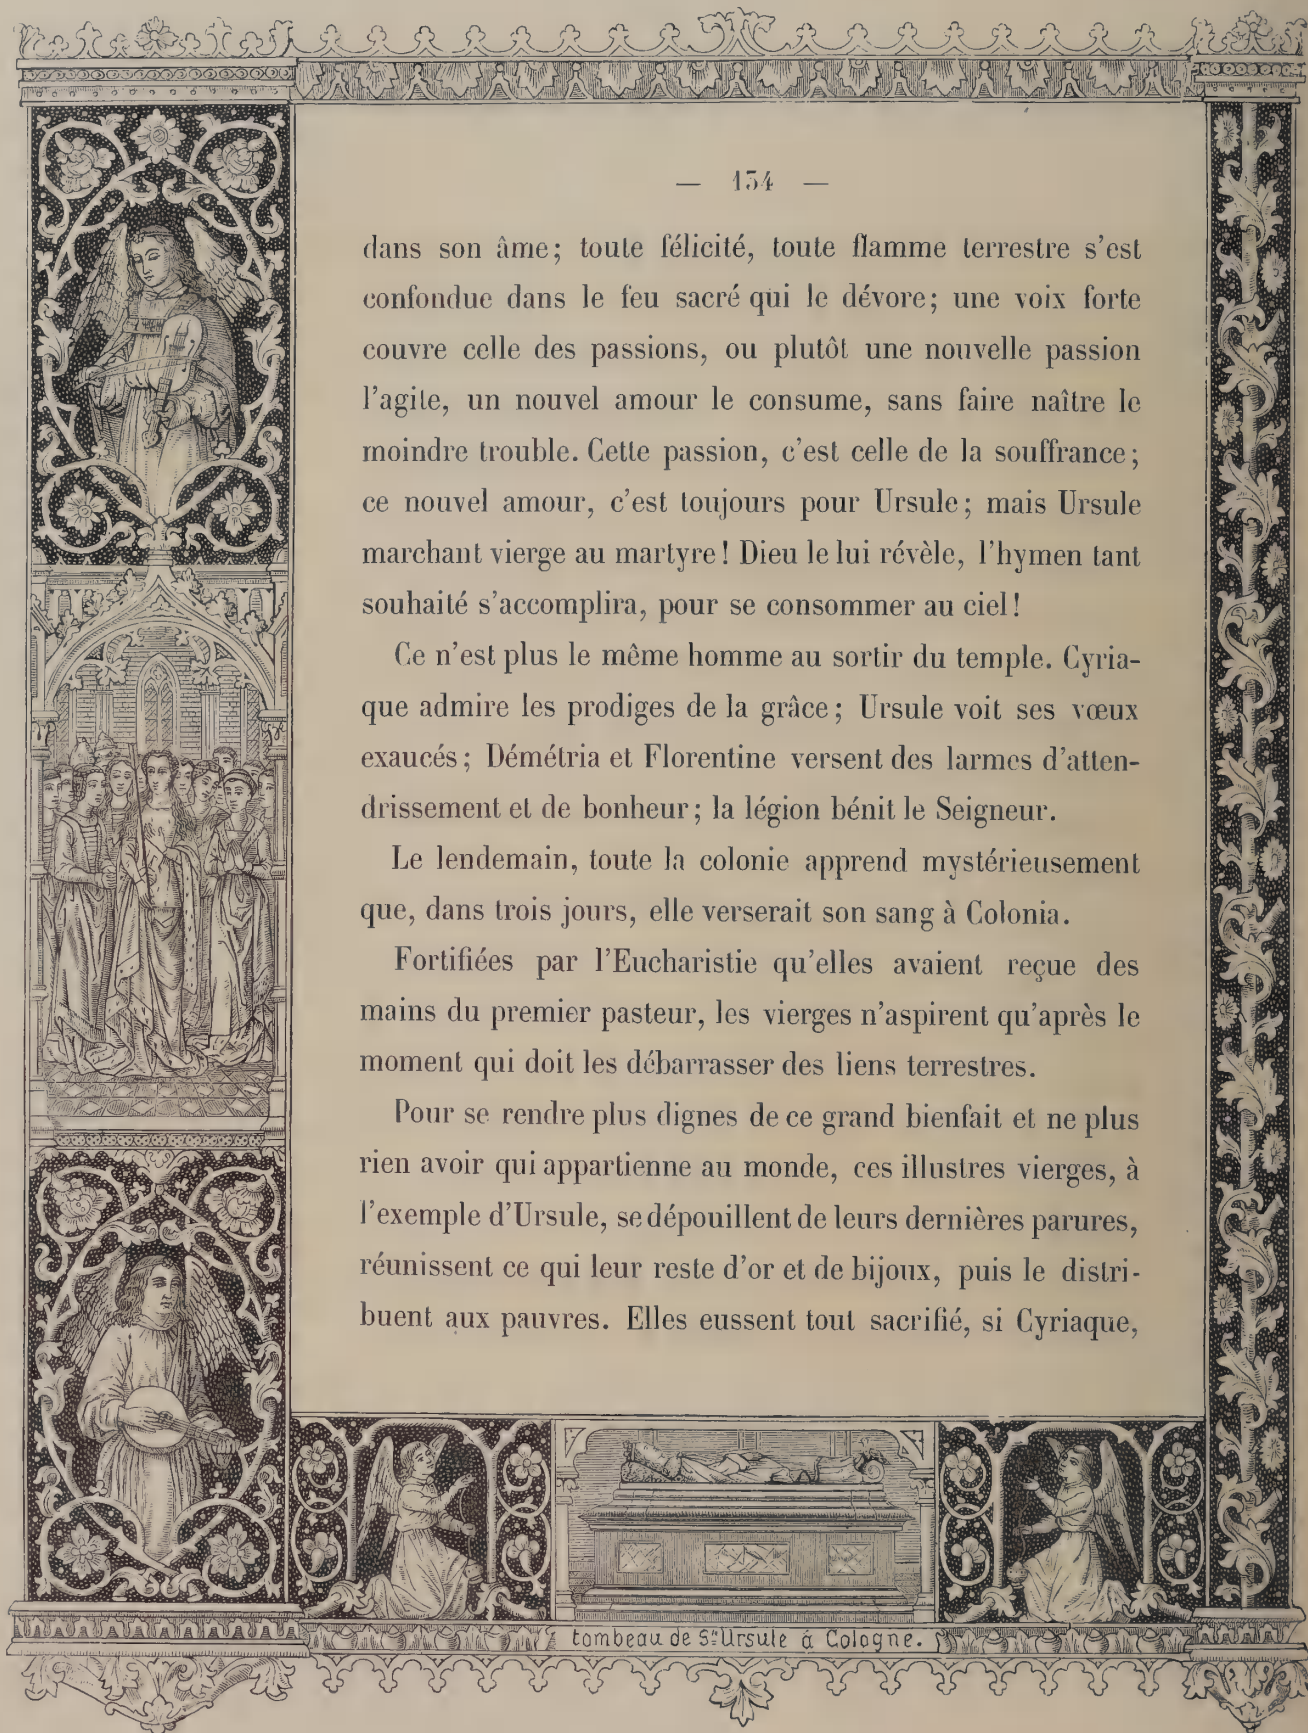 — 134 —
dans son âme; toute félicité, toute flamme terrestre s'est
confondue dans le feu sacré qui le dévore; une voix forte
couvre celle des passions, ou plutôt une nouvelle passion
l'agite, un nouvel amour le consume, sans faire naître le
moindre trouble. Cette passion, c'est celle de la souffrance;
ce nouvel amour, c'est toujours pour Ursule; mais Ursule
marchant vierge au martyre! Dieu le lui révèle, l'hymen tant
souhaité s'accomplira, pour se consommer au ciel!
Ce n'est plus le même homme au sortir du temple. Cyria-
que admire les prodiges de la grâce; Ursule voit ses vœux
exaucés; Démétria et Florentine versent des larmes d'atten-
drissement et de bonheur; la légion bénit le Seigneur.
Le lendemain, toute la colonie apprend mystérieusement
que, dans trois jours, elle verserait son sang à Colonia.
Fortifiées par l'Eucharistie qu'elles avaient reçue des
mains du premier pasteur, les vierges n'aspirent qu'après le
moment qui doit les débarrasser des liens terrestres.
Pour se rendre plus dignes de ce grand bienfait et ne plus
rien avoir qui appartienne au monde, ces illustres vierges, à
l'exemple d'Ursule, se dépouillent de leurs dernières parures,
réunissent ce qui leur reste d'or et de bijoux, puis le distri-
buent aux pauvres. Elles eussent tout sacrifié, si Cyriaque,
tombeau de Ste Ursule à Cologne.